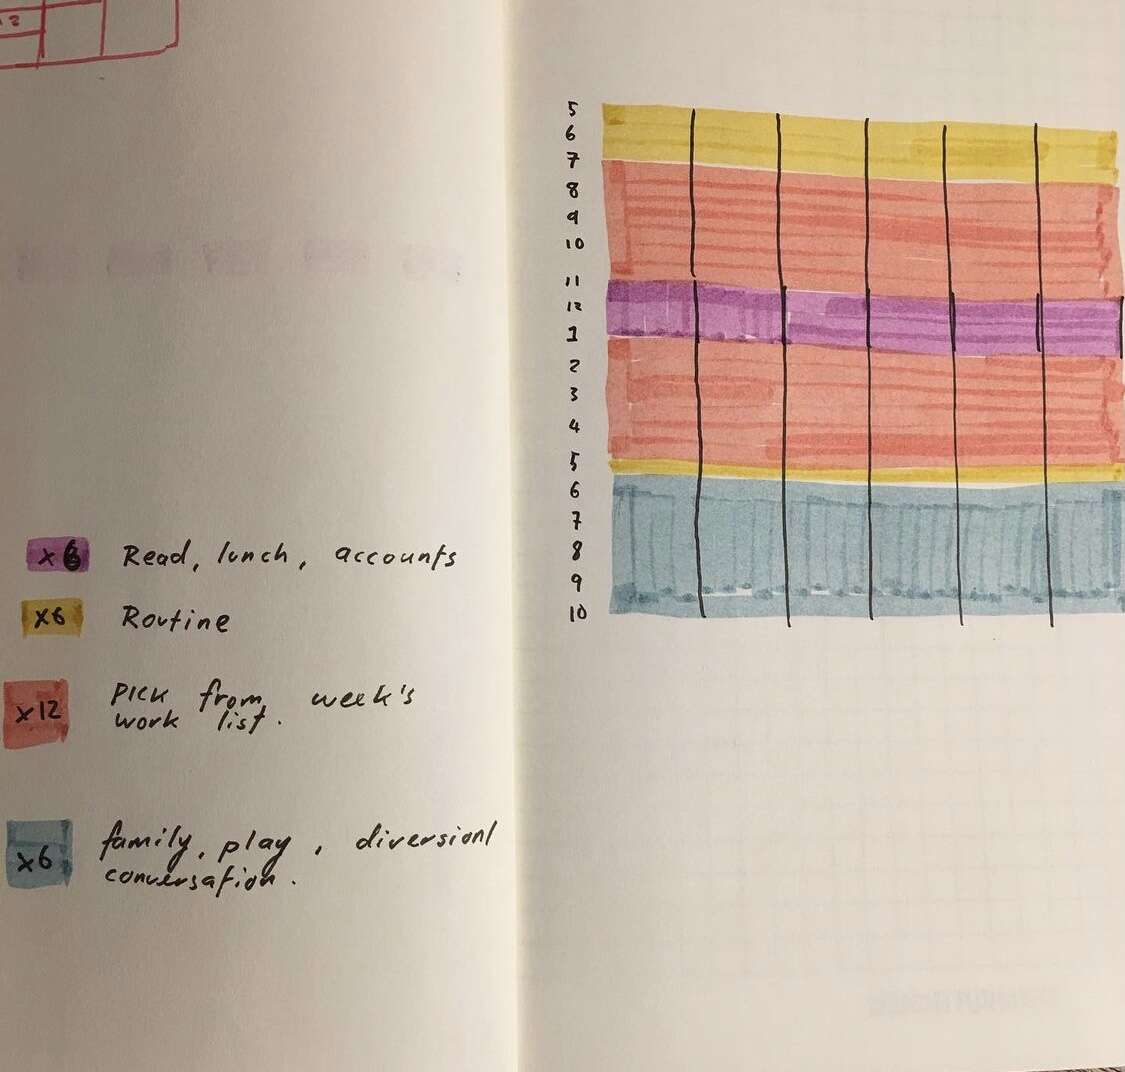 x 6 Read, lunch, accounts
x6 Routine
x12 PICK from week's
work list.
x6 family, play, diversionl
conversation.
5
6
7
8
9
10
11
12
1
2
3
4
5
6
7
8
9
10